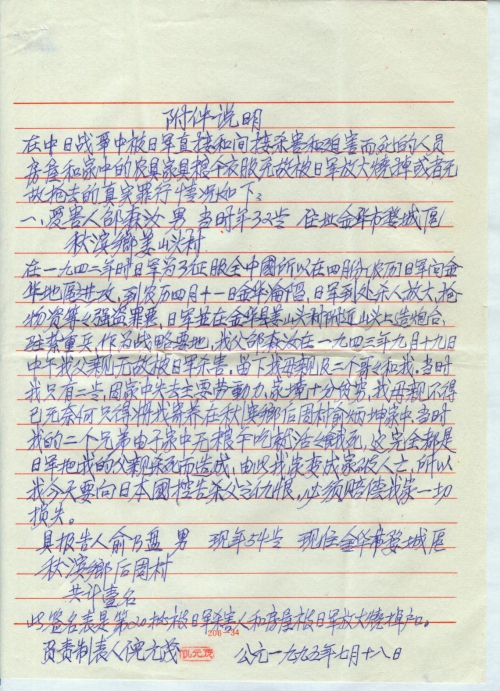 附件说明
在中日战争中被日军直接和间接杀害和残害而死的人员
房屋和家中的农具家具粮食衣服无故被日军放火烧掉或者无
故抢去的真实罪行情况如下:
一、受害人邵森汝 男 当时年32岁 住址金华市婺城区
秋滨鄉姜山头村
在一九四二年时日军为了征服全中國所以在四月份农历日军向金
华地区进攻,到农历四月十一日金华沦陷,日军到处杀人放火,抢
物资等之强盗罪恶,日军并在金华县姜山头村附近山头上造炮台,
驻扎重兵作为战略要地,我父邵森汝在一九四三年九月十九日
中下我父親无故被日军杀害,留下我母親及二个哥哥和我,当时
我只有二岁,因家中失去主要劳動力,家境十分贫穷,我母親不得
已无奈何只得将我寄养在秋滨鄉后周村俞炳坤家中,当时
我的二个兄弟由于家中无粮午吃就活活餓死,这完全都是
日军把我的父親杀死而造成,由此我家变成家破人亡,所以
我今天要向日本國控告杀父之仇恨,必须赔偿我家一切
损失。
具报告人俞 盘 男 现年54岁 现住金华市婺城區
秋滨鄉后周村
共计壹名
此签名表是第20批被日军杀害人和房屋被日军放火烧掉户。
206-34
负责制表人 元茂 公元一九九五年七月十八日